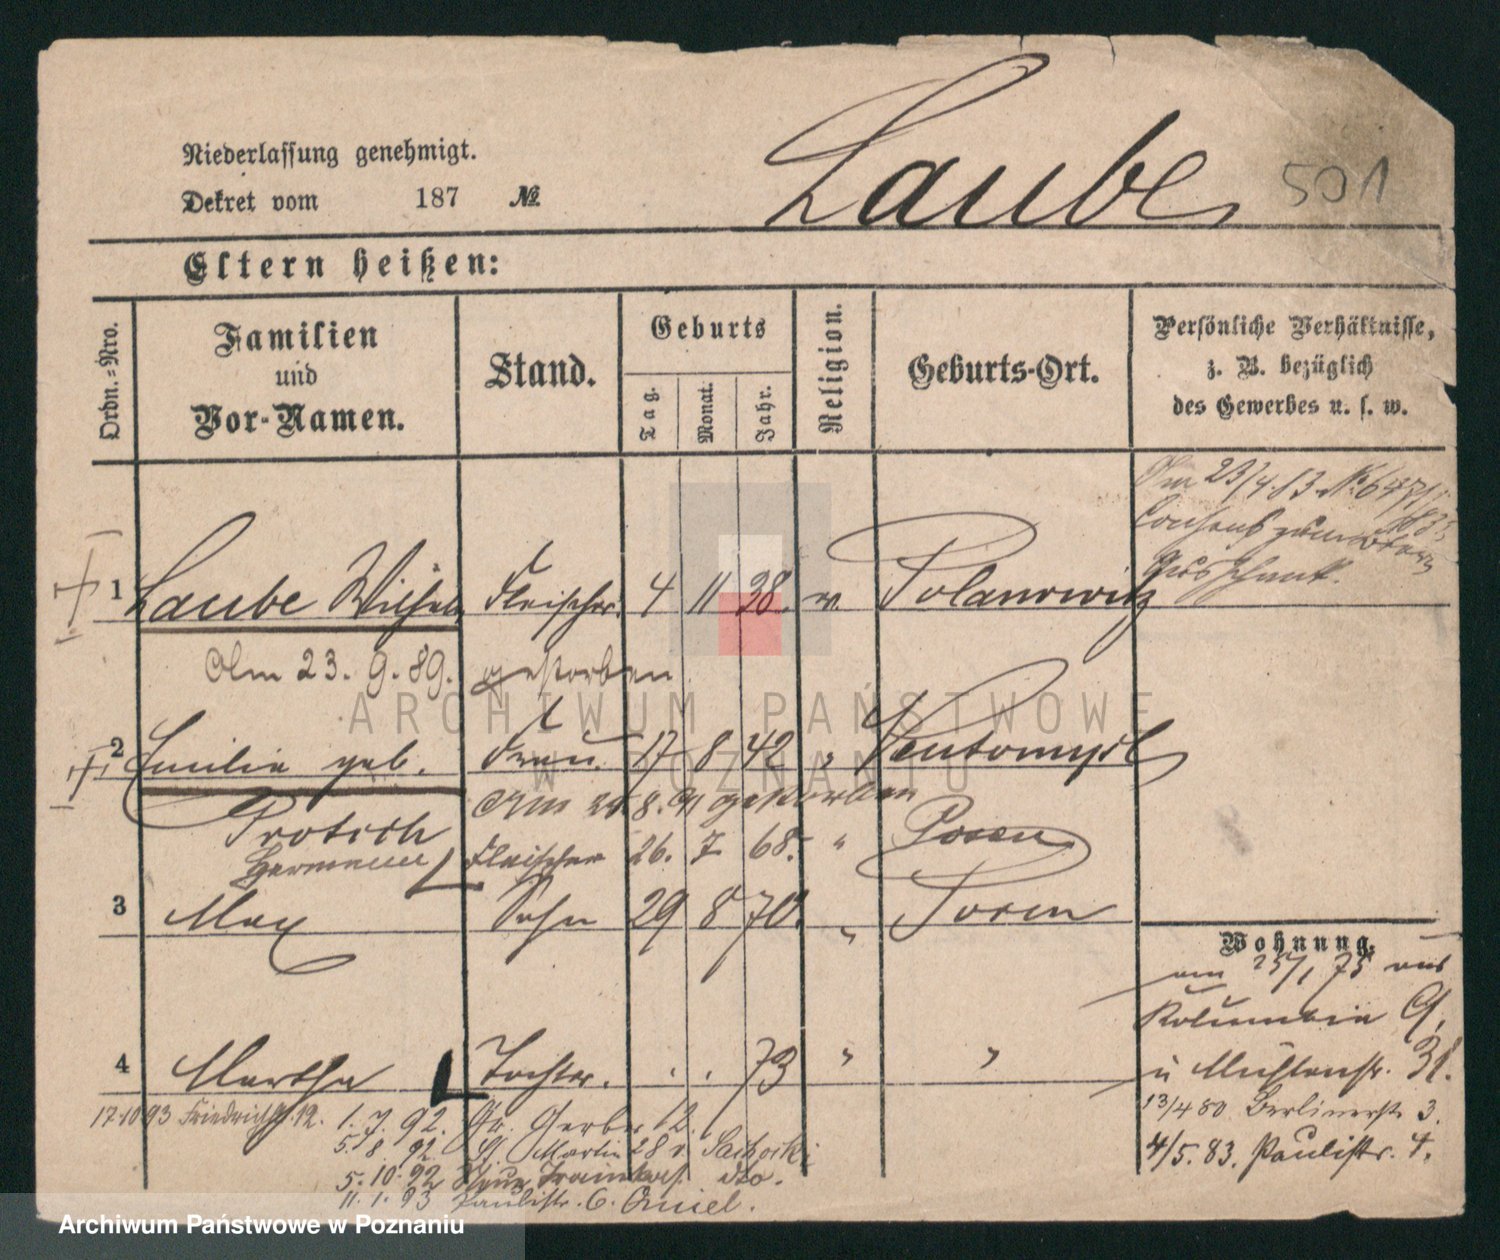 Niederlassung genehmigt.
Dekret vom 187 №
Laube
501
Eltern heißen:
Ordn.=Nro.
Familien
und
Vor-Namen.
Stand.
Geburts
Tag.
Monat.
Jahr.
Religion.
Geburts-Ort.
Persönliche Verhältnisse,
z. B. bezüglich
des Gewerbes u. s. w.
Am 23/4.83 №
Consens zum
Ausschank.
1 Laube Wilhelm Fleischer. 4 11 38. Polanowitz
Am 23.9.89. gestorben
2 Emilie geb. Frau. 17 8 42 " Neutomysl
Am 8.91 gestorben
Protsch
Hermann Fleischer 26. 7 68. " Posen
3 Max Sohn 29 8 70. " Posen
Wohnung.
am 25/1 75 aus
Kolumbia 9,
4 Martha Tochter. . . 73 " "
u 31.
13/4 80 Berlinerstr 3.
4/5.83. Paulistr. 4.
17.10 93 Friedrichstr. 12.
1.7.92. Gr. Gerber 12.
5.8.92 St. Martin 28
5.10.92 dto.
11.1.93 Paulistr. 6.
ARCHIWUM PAŃSTWOWE
W POZNANIU
Archiwum Państwowe w Poznaniu